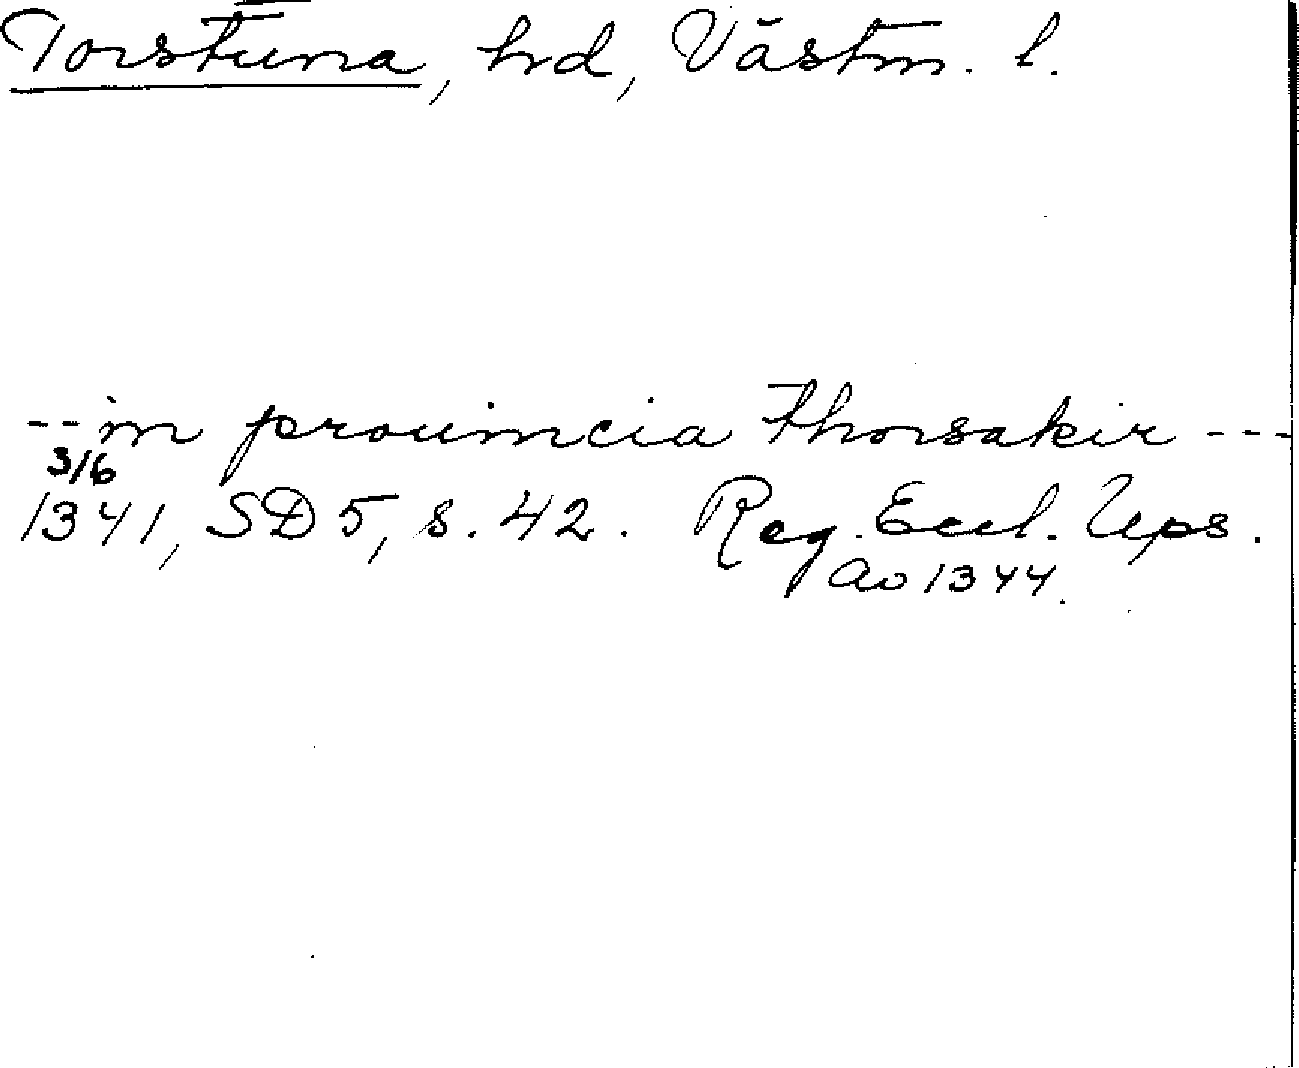 Torstuna, hd, Västm. l.
--in prouincia Thorsakir ---
3/6
1341, SD 5, s. 42. Reg. Eccl. Ups.
Ao 1344.